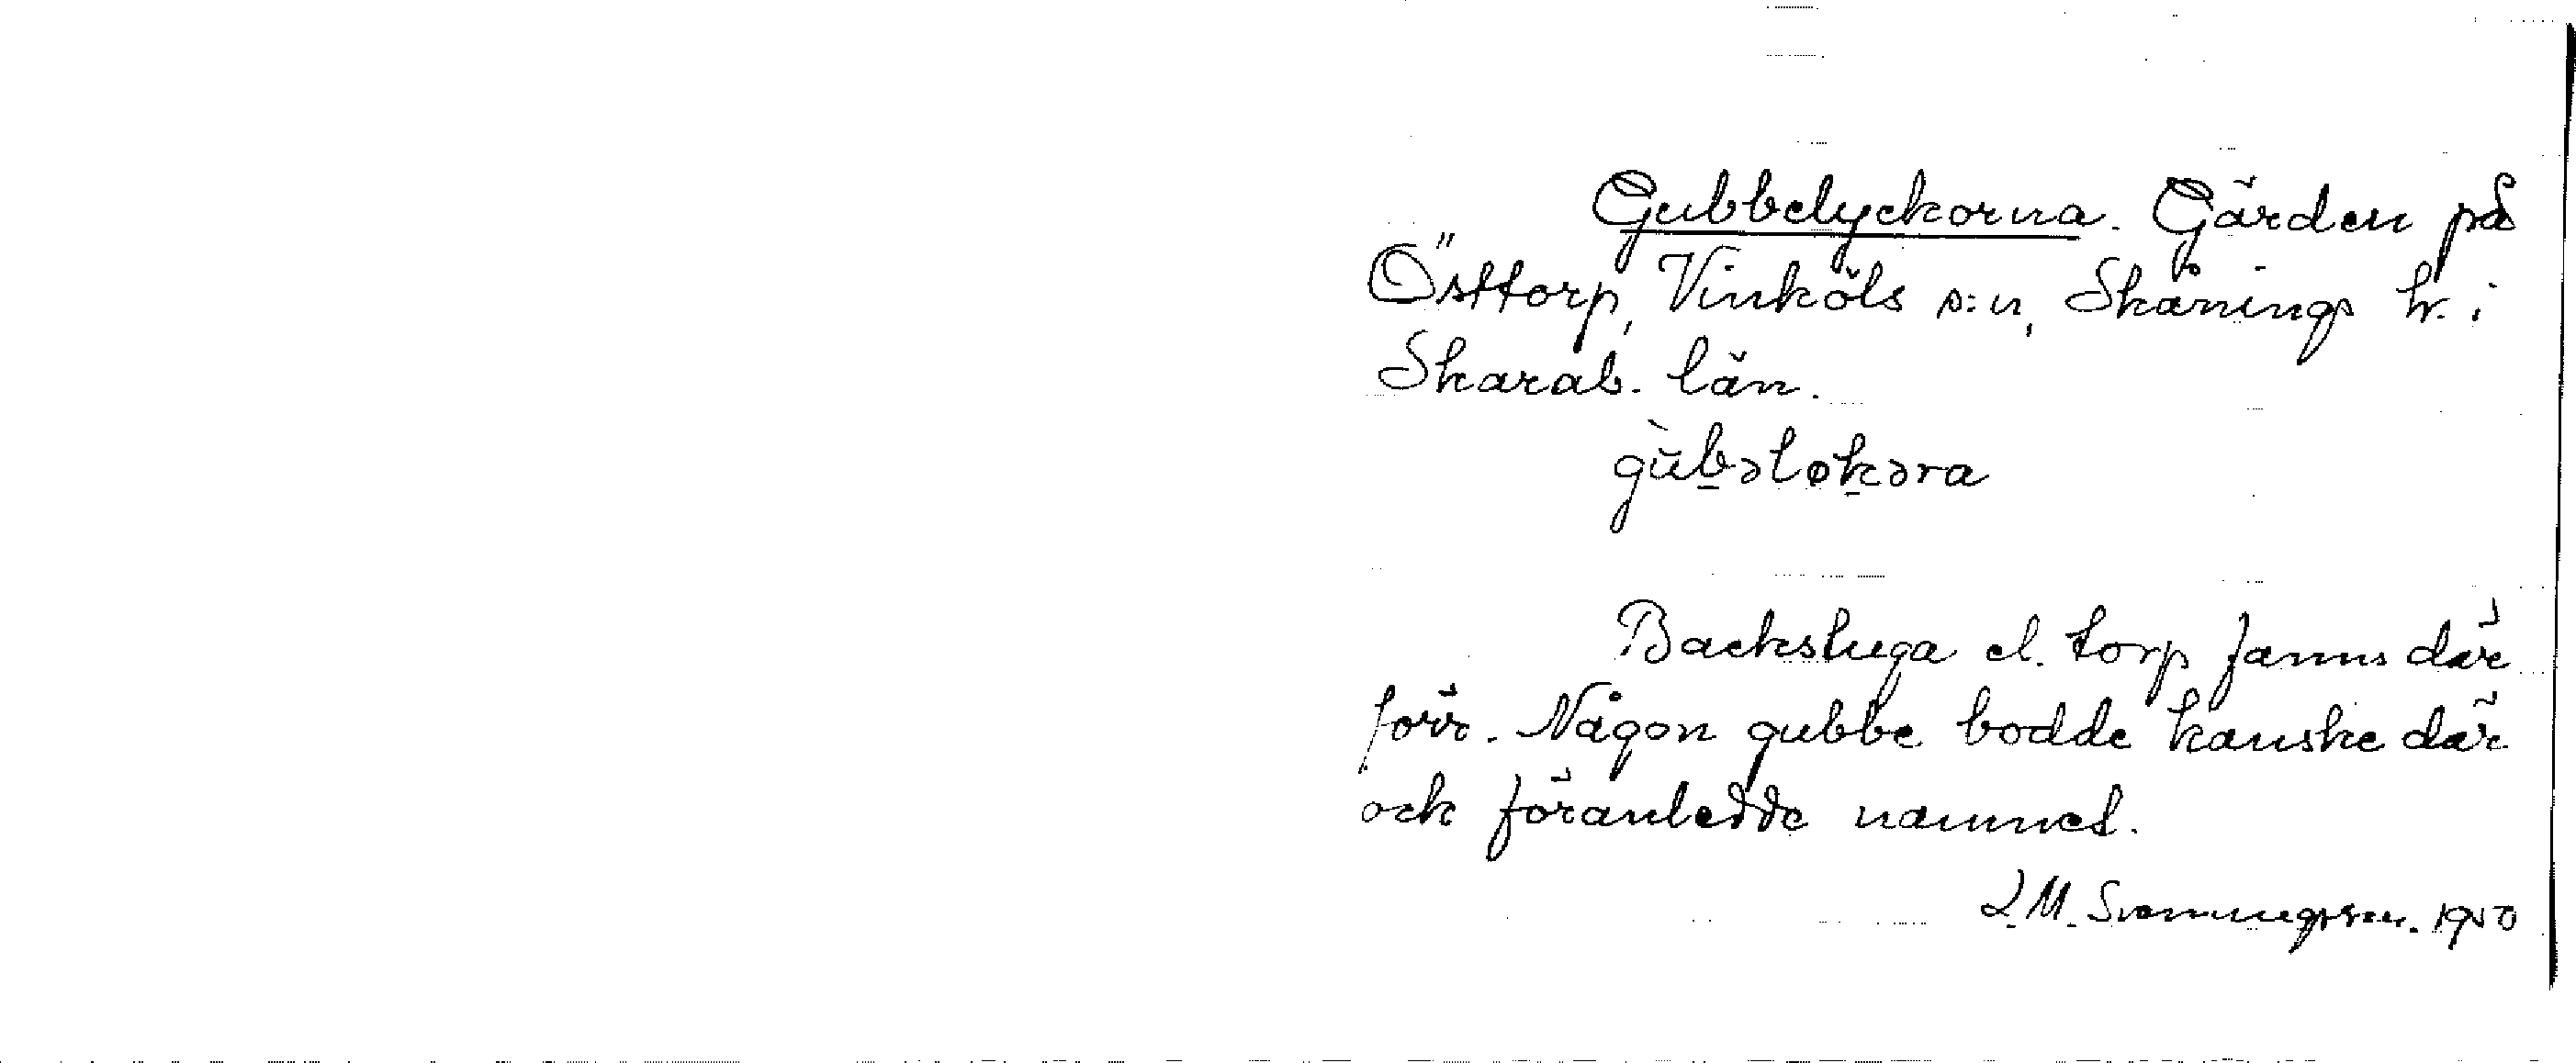 Gubbelyckorna. Gärden på
Östtorp, Vinköls s:n, Skånings hr. i
Skarab. län.
gùb̲əløk̲əra
Backstuga el. torp fanns där
förr. Någon gubbe bodde kanske där
ock föranledde namnet.
L.M. Svenungsson. 1950